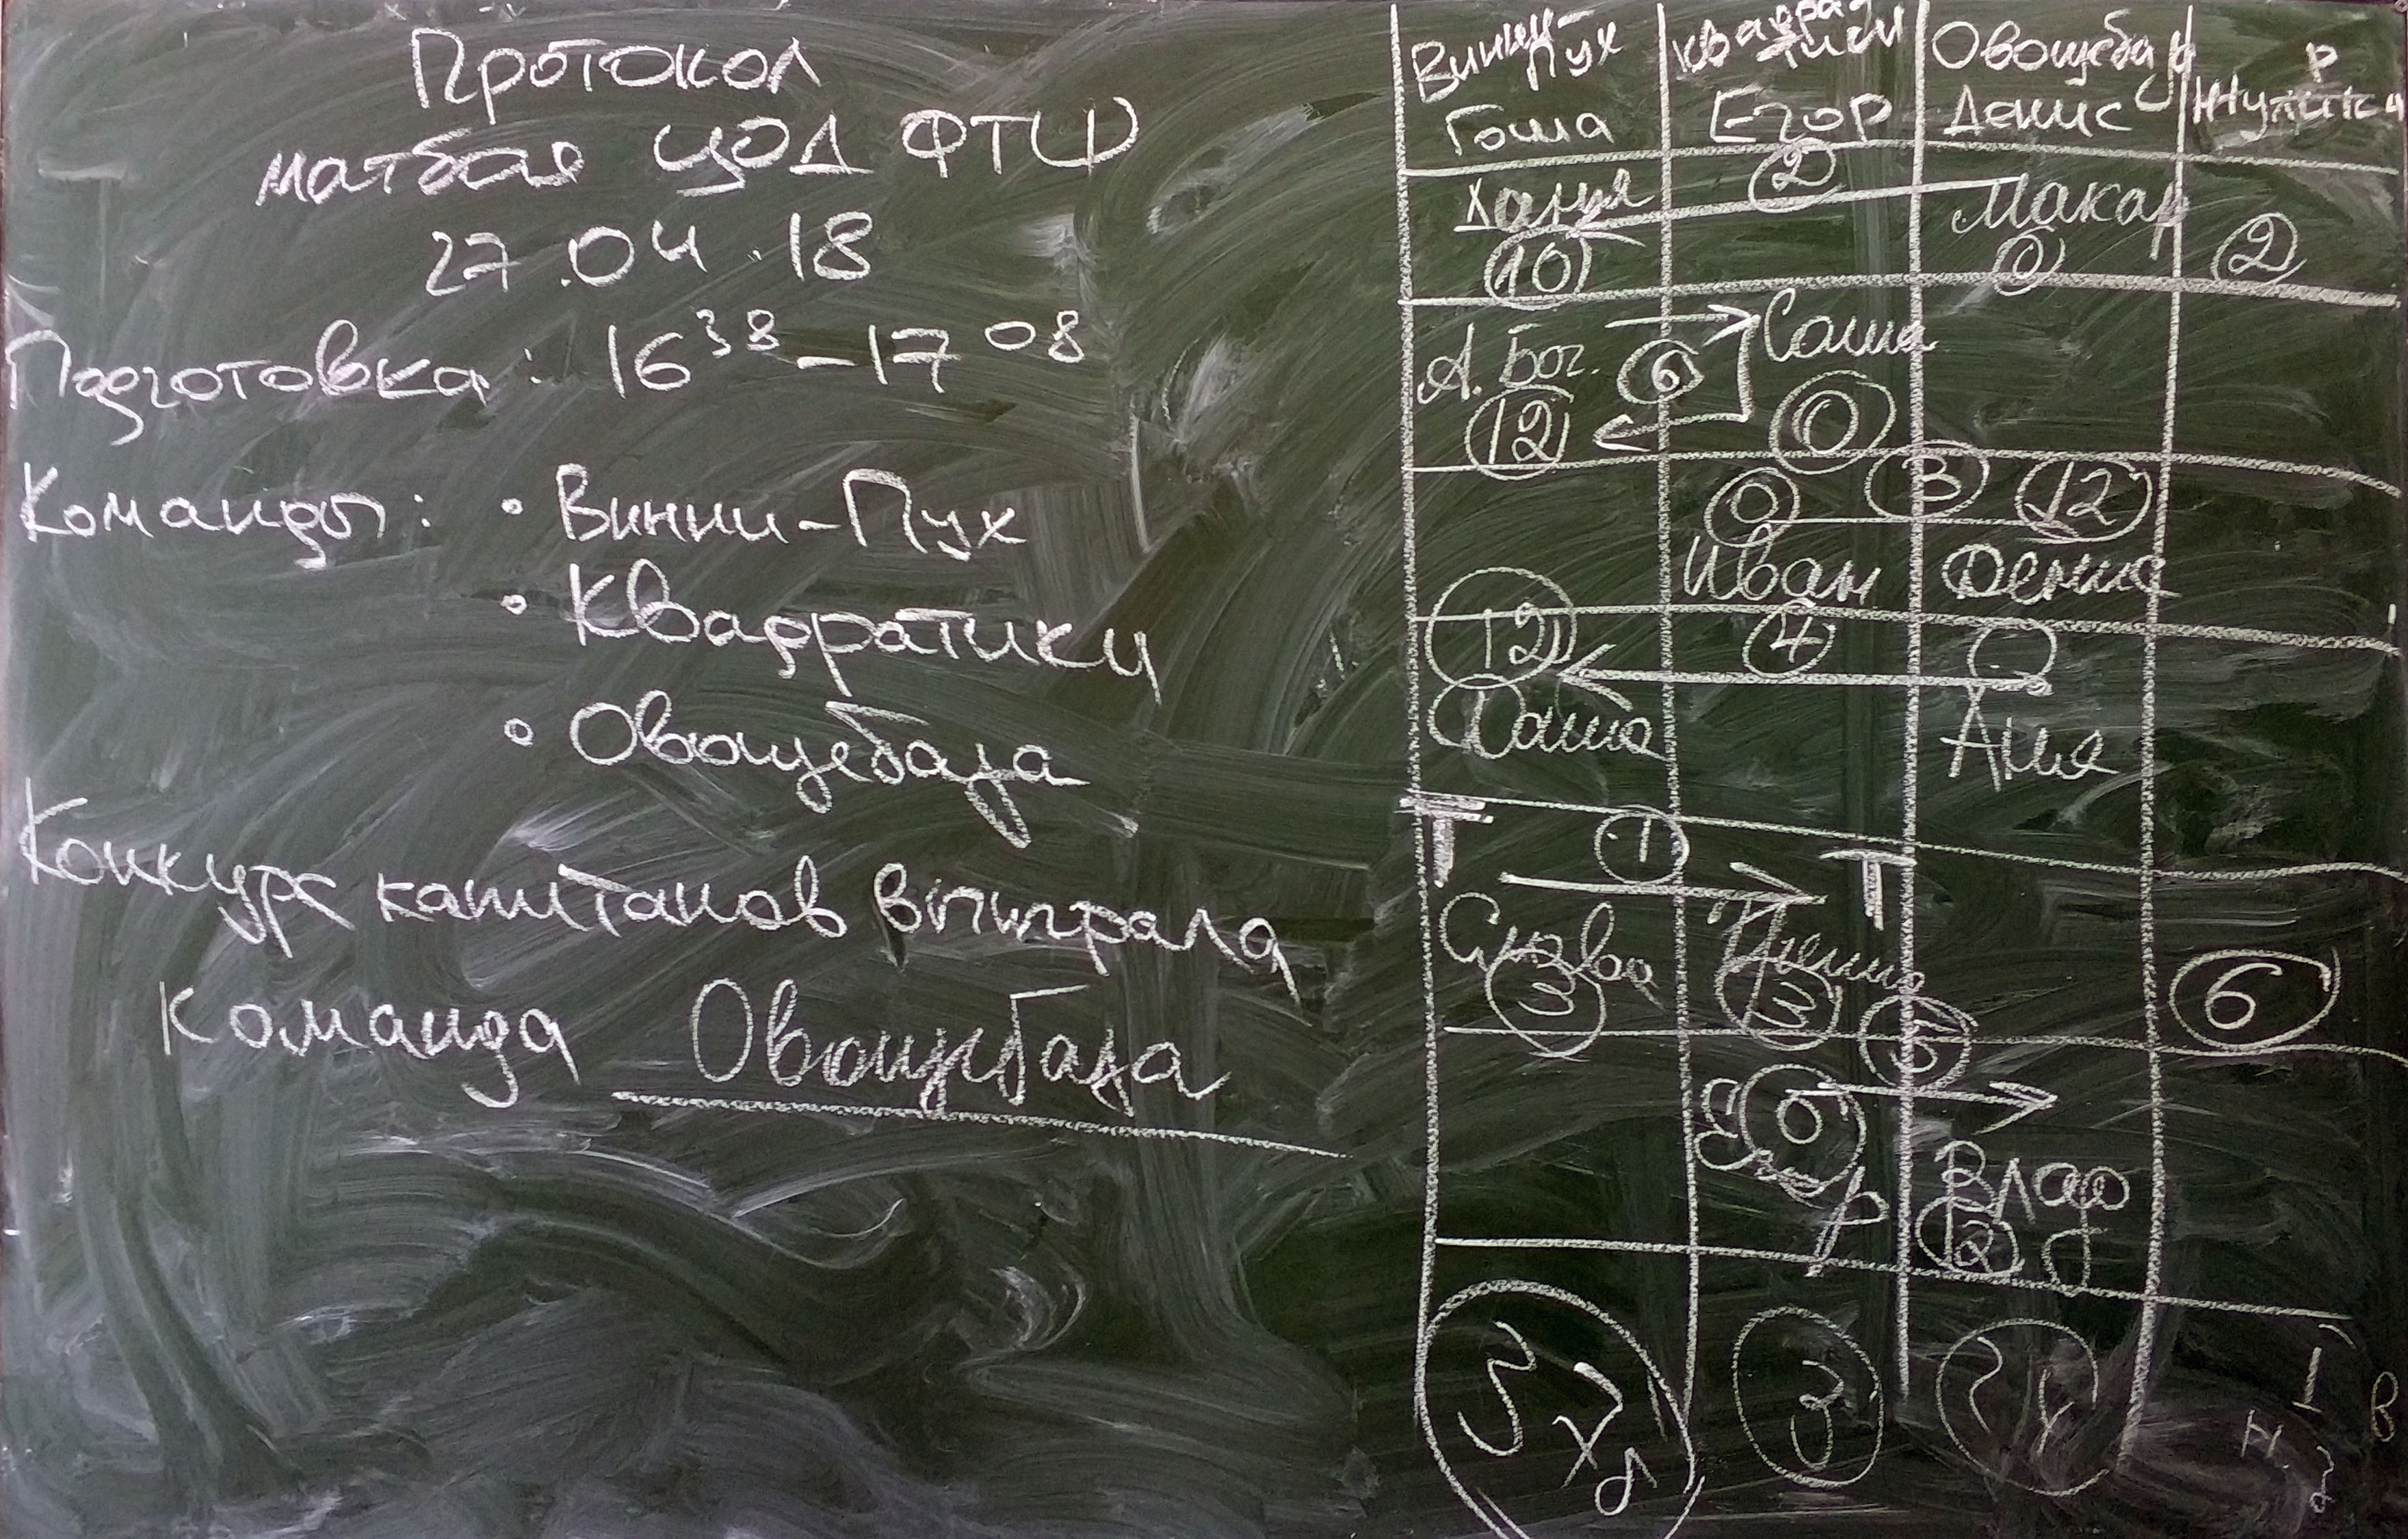 Протокол
матбоя ЦОД ФТШ
27.04.18
Подготовка: 16³⁸-17⁰⁸
Команды: • Винни-Пух
• Квадратики
• Овощебаза
Конкурс капитанов выиграла
команда Овощебаза
Винни-Пух Квадратики Овощеба
Гоша Егор Денис
2
Ханья Макар
10 0 2
А. Бог. 6 Саша
12 0
0 3 12
Иван Денис
12 4
Даша Аня
Т 1 Т
Слава
3 3 6
5
Егор 0
Влад
12
37 3 24